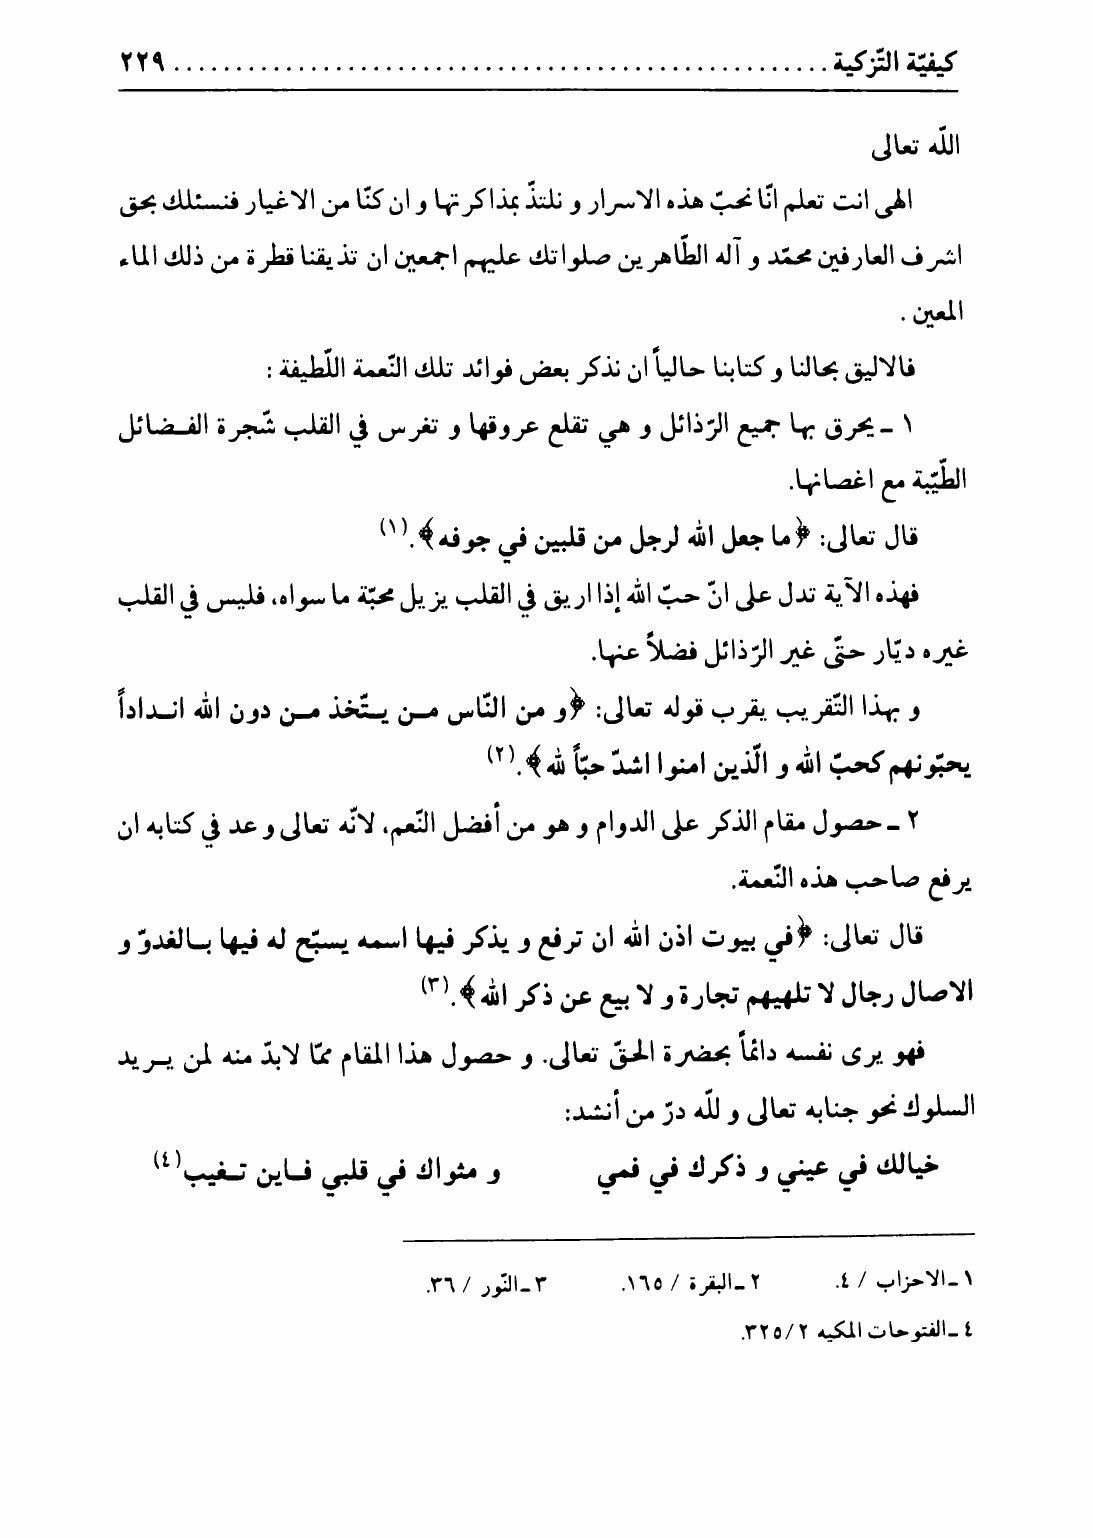 كيفيّة التّزكية ..................................................... ٢٢٩
اللّه تعالى
الهى انت تعلم انّا نحبّ هذه الاسرار و نلتذّ بمذاكرتها و ان كنّا من الاغيار فنسئلك بحق
اشرف العارفين محمّد و آله الطّاهرين صلواتك عليهم اجمعين ان تذيقنا قطرة من ذلك الماء
المعين .
فالاليق بحالنا و كتابنا حالياً ان نذكر بعض فوائد تلك النّعمة اللّطيفة :
١ ـ يحرق بها جميع الرّذائل و هي تقلع عروقها و تغرس في القلب شّجرة الفـضائل
الطّيّبة مع اغصانها.
قال تعالى: ﴿ما جعل الله لرجل من قلبين في جوفه﴾.(١)
فهذه الآية تدل على انّ حبّ الله إذا اريق في القلب يزيل محبّة ما سواه، فليس في القلب
غيره ديّار حتّى غير الرّذائل فضلاً عنها.
و بهذا التّقريب يقرب قوله تعالى: ﴿و من النّاس مـن يـتّخذ مـن دون الله انـداداً
يحبّونهم كحبّ الله و الّذين امنوا اشدّ حبّاً لله﴾.(٢)
٢ ـ حصول مقام الذكر على الدوام و هو من أفضل النّعم، لانّه تعالى وعد في كتابه ان
يرفع صاحب هذه النّعمة.
قال تعالى: ﴿في بيوت اذن الله ان ترفع و يذكر فيها اسمه يسبّح له فيها بـالغدوّ و
الاصال رجال لا تلهيهم تجارة و لا بيع عن ذكر الله﴾.(٣)
فهو يرى نفسه دائماً بحضرة الحقّ تعالى. و حصول هذا المقام ممّا لابدّ منه لمن يـريد
السلوك نحو جنابه تعالى و للّه درّ من أنشد:
خيالك في عيني و ذكرك في فمي و مثواك في قلبي فـاين تـغيب(٤)
١ـ الاحزاب / ٤. ٢ـ البقرة / ١٦٥. ٣ـ النّور / ٣٦.
٤ـ الفتوحات المكيه ٣٢٥/٢.